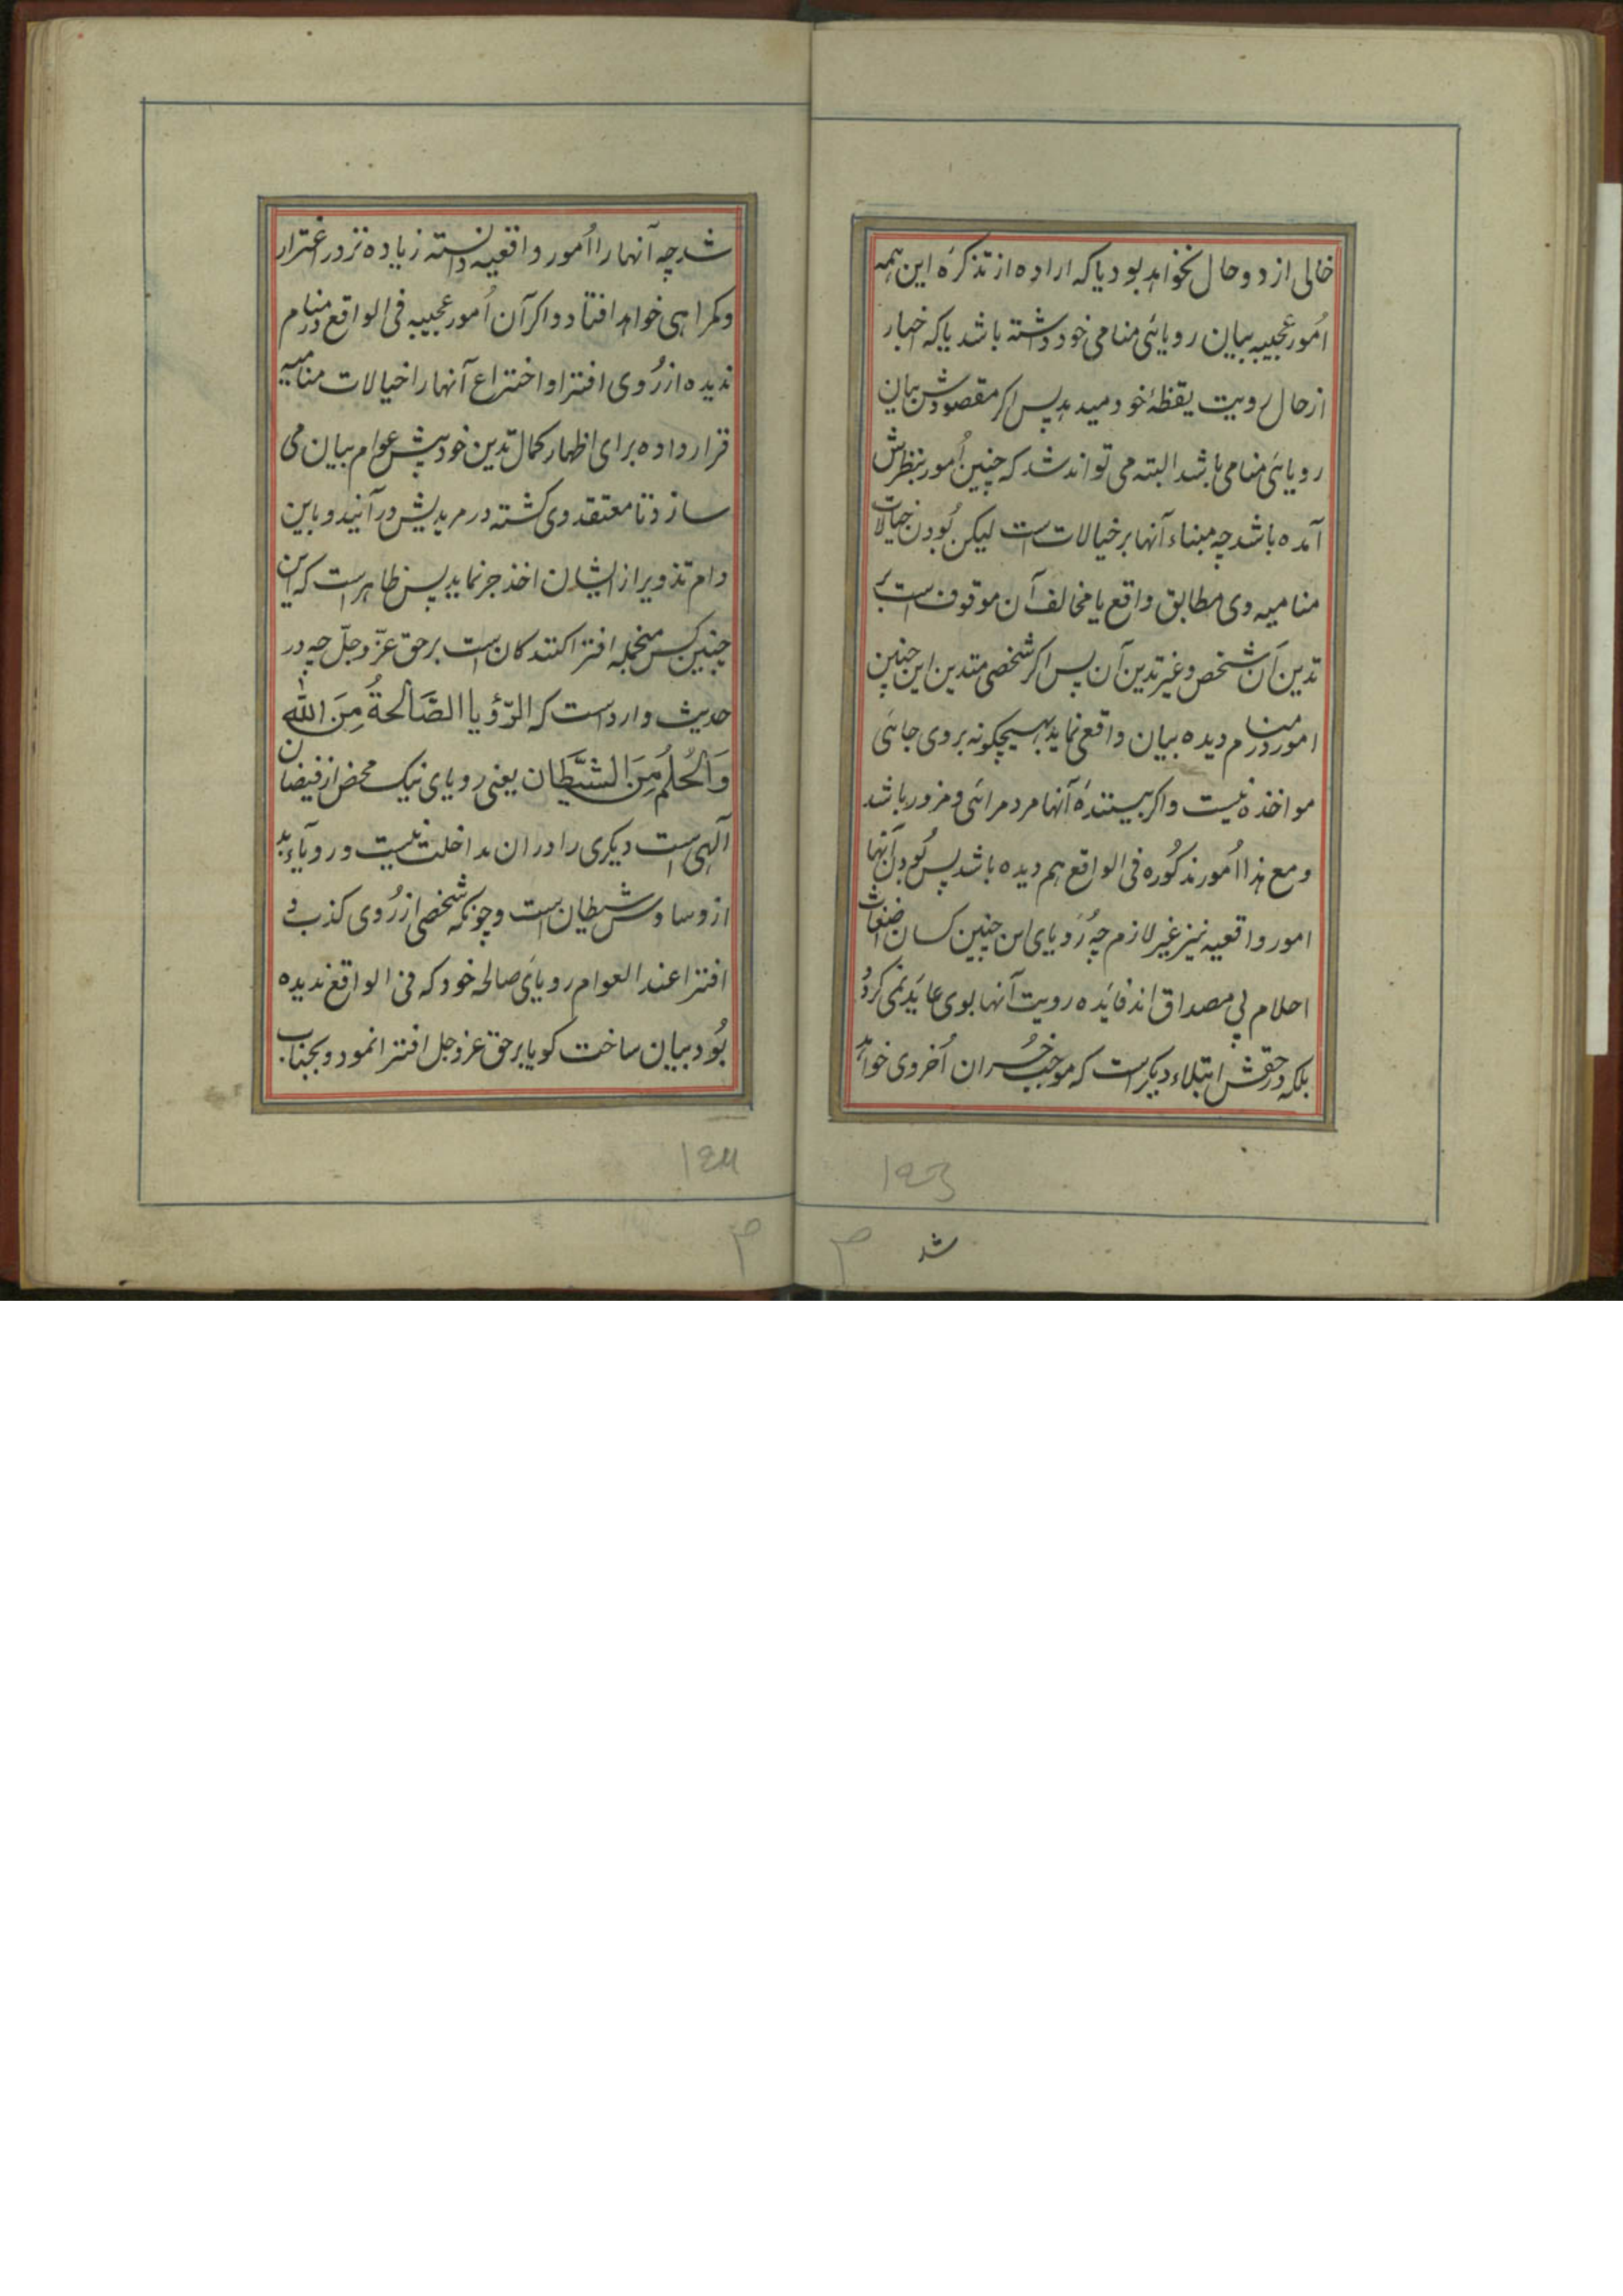 خالی از دو حال نخواهد بود یا که اراده از تذکرهٔ این همه
اُمور عجیبه بیان رویائی منامی خود داشته باشد یا که اخبار
از حال رویت یقظهٔ خود میدهد پس اکر مقصودش بیان
رویائی منامی باشد البته می تواند شد که چنین اُمور بنظرش
آمده باشد چه مبناء آنها بر خیالات است لیکن بُودن خیالات
منامیه وی مطابق واقع یا مخالف آن موقوف است بر
تدین آن شخص و غیر تدین آن پس اکر شخصی متدین این چنین
امور در منام دیده بیان واقع نماید بهیچکونه بروی جائی
مواخذه نیست و اکر بیننندهٔ آنها مرد مرائی و مزور باشد
و مع هذا اُمور مذکُوره فی الواقع هم دیده باشد پس بُودن آنها
امور واقعیه نیز غیر لازم چه رُویای این چنین کسان اضغاث
احلام بی مصداق اند فایده رویت آنها بوی عاید نمی کردد
بلکه در حقش ابتلاء دیکر است که موجب خُسران اُخروی خواهد
۱۴۳
شد
شد چه آنها را اُمور واقعیه دانسته زیاده تر در اغترار
و کمراهی خواهد افتاد و اکر آن اُمور عجیبه فی الواقع در منام
ندیده از رُوی افترا و اختراع آنها را خیالات منامیه
قرار داده برای اظهار کمال تدین خود پیش عوام بیان می
سازد تا معتقد وی کشته در مریدیش در آیند و باین
دام تذویر از ایشان اخذ جر نماید پس ظاهر است که این
چنین کس منجمله افترا کنندکان است بر حق عزّ و جلّ چه در
حدیث وارد است که الرّؤیا الصَّالحةُ مِنَ اللّٰه
وَالحُلُمُ مِنَ الشَّیطَان یعنی رویای نیک محض از فیضان
آلهی است دیکری را در ان مداخلت نیست و رویاء بد
از وساوس شیطان است و چونکه شخصی از رُوی کذب و
افترا عند العوام رویای صالحه خود که فی الواقع ندیده
بُود بیان ساخت کویا بر حق عز و جل افترا نمود و بجناب